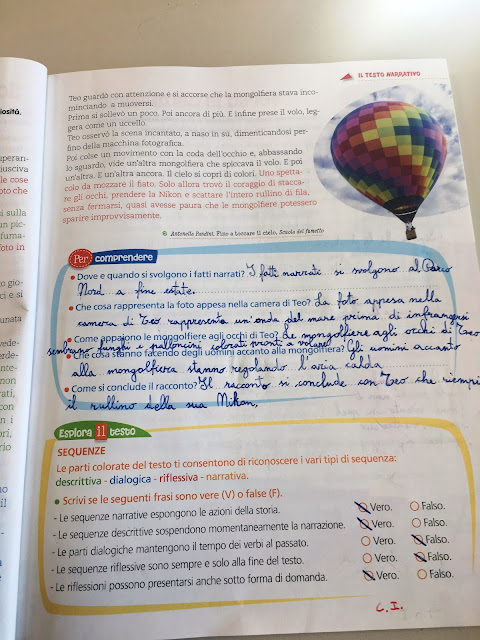 IL TESTO NARRATIVO
Teo guardò con attenzione e si accorse che la mongolfiera stava inco-
minciando a muoversi.
Prima si sollevò un poco. Poi ancora di più. E infine prese il volo, leg-
gera come un uccello.
Teo osservò la scena incantato, a naso in su, dimenticandosi per-
fino della macchina fotografica.
Poi colse un movimento con la coda dell'occhio e, abbassando
lo sguardo, vide un'altra mongolfiera che spiccava il volo. E poi
un'altra. E un'altra ancora. Il cielo si coprì di colori. Uno spetta-
colo da mozzare il fiato. Solo allora trovò il coraggio di stacca-
re gli occhi, prendere la Nikon e scattare l'intero rullino di fila,
senza fermarsi, quasi avesse paura che le mongolfiere potessero
sparire improvvisamente.
Antonella Pandini, Fino a toccare il cielo, Scuola del fumetto
Per comprendere
• Dove e quando si svolgono i fatti narrati? I fatti narrati si svolgono al Parco
Nord a fine estate.
• Che cosa rappresenta la foto appesa nella camera di Teo? La foto appesa nella
camera di Teo rappresenta un'onda del mare prima di infrangersi
• Come appaiono le mongolfiere agli occhi di Teo? Le mongolfiere agli occhi di Teo
sembrano funghi e palloncini colorati pronti a volare
• Che cosa stanno facendo degli uomini accanto alla mongolfiera? Gli uomini accanto
alla mongolfiera stanno regolando l'aria calda
• Come si conclude il racconto? Il racconto si conclude con Teo che riempì
il rullino della sua Nikon.
Esplora il testo
SEQUENZE
Le parti colorate del testo ti consentono di riconoscere i vari tipi di sequenza:
descrittiva - dialogica - riflessiva - narrativa.
• Scrivi se le seguenti frasi sono vere (V) o false (F).
- Le sequenze narrative espongono le azioni della storia. Vero. Falso.
- Le sequenze descrittive sospendono momentaneamente la narrazione. Vero. Falso.
- Le parti dialogiche mantengono il tempo dei verbi al passato. Vero. Falso.
- Le sequenze riflessive sono sempre e solo alla fine del testo. Vero. Falso.
- Le riflessioni possono presentarsi anche sotto forma di domanda. Vero. Falso.
C.I.